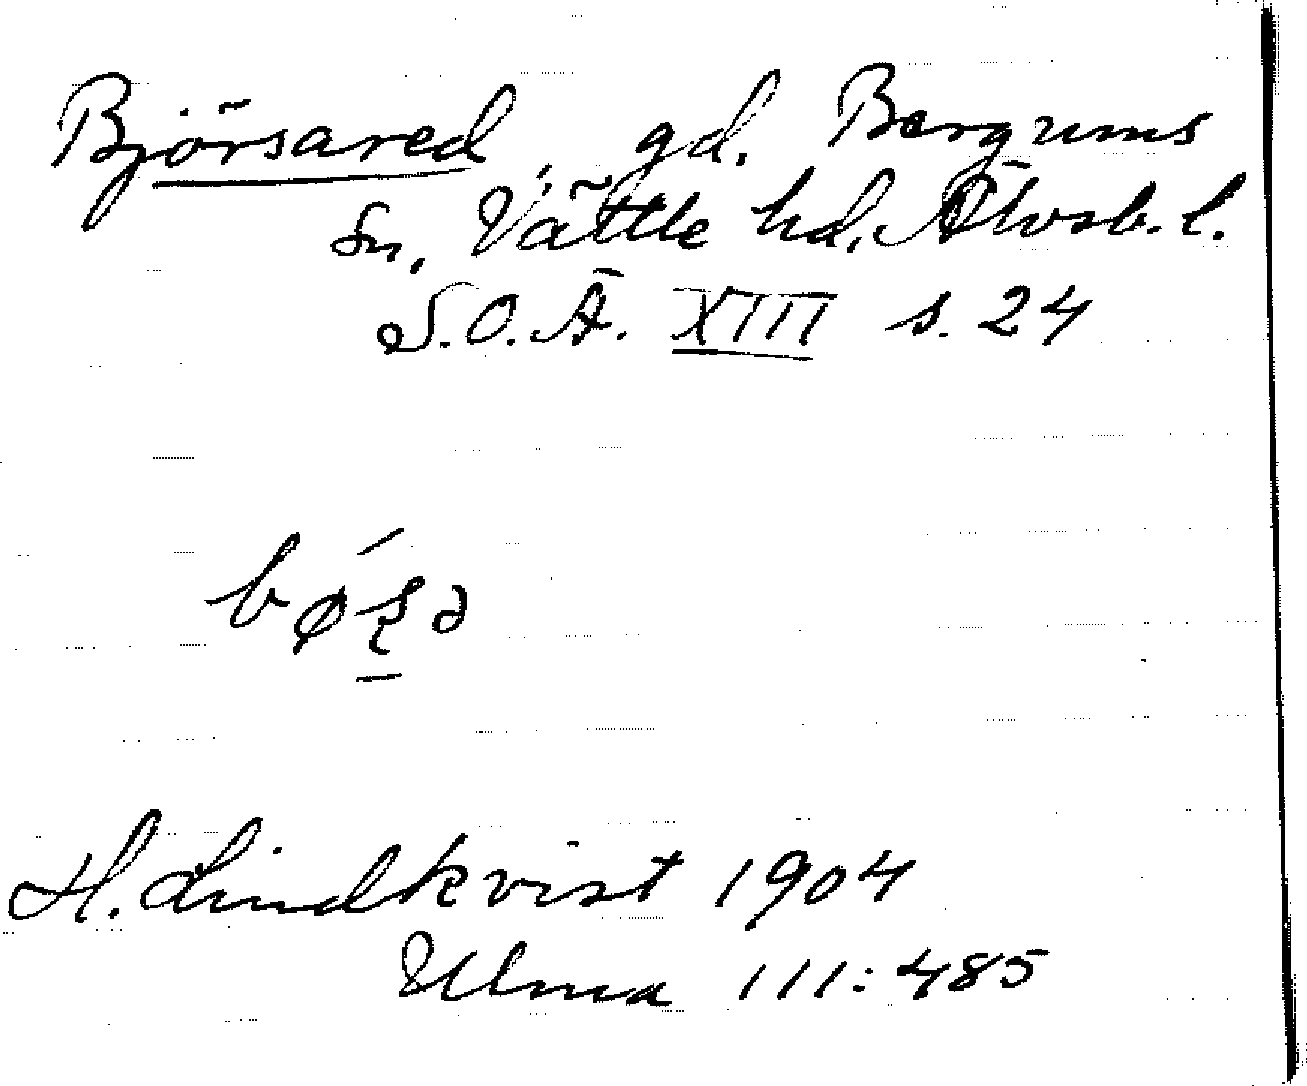 Björsared, gd. Bergums
sn, Vättle hd. Älvsb. l.
S.O.Ä. XIII s. 24
H. Lindkvist 1904
Ulma 111:485